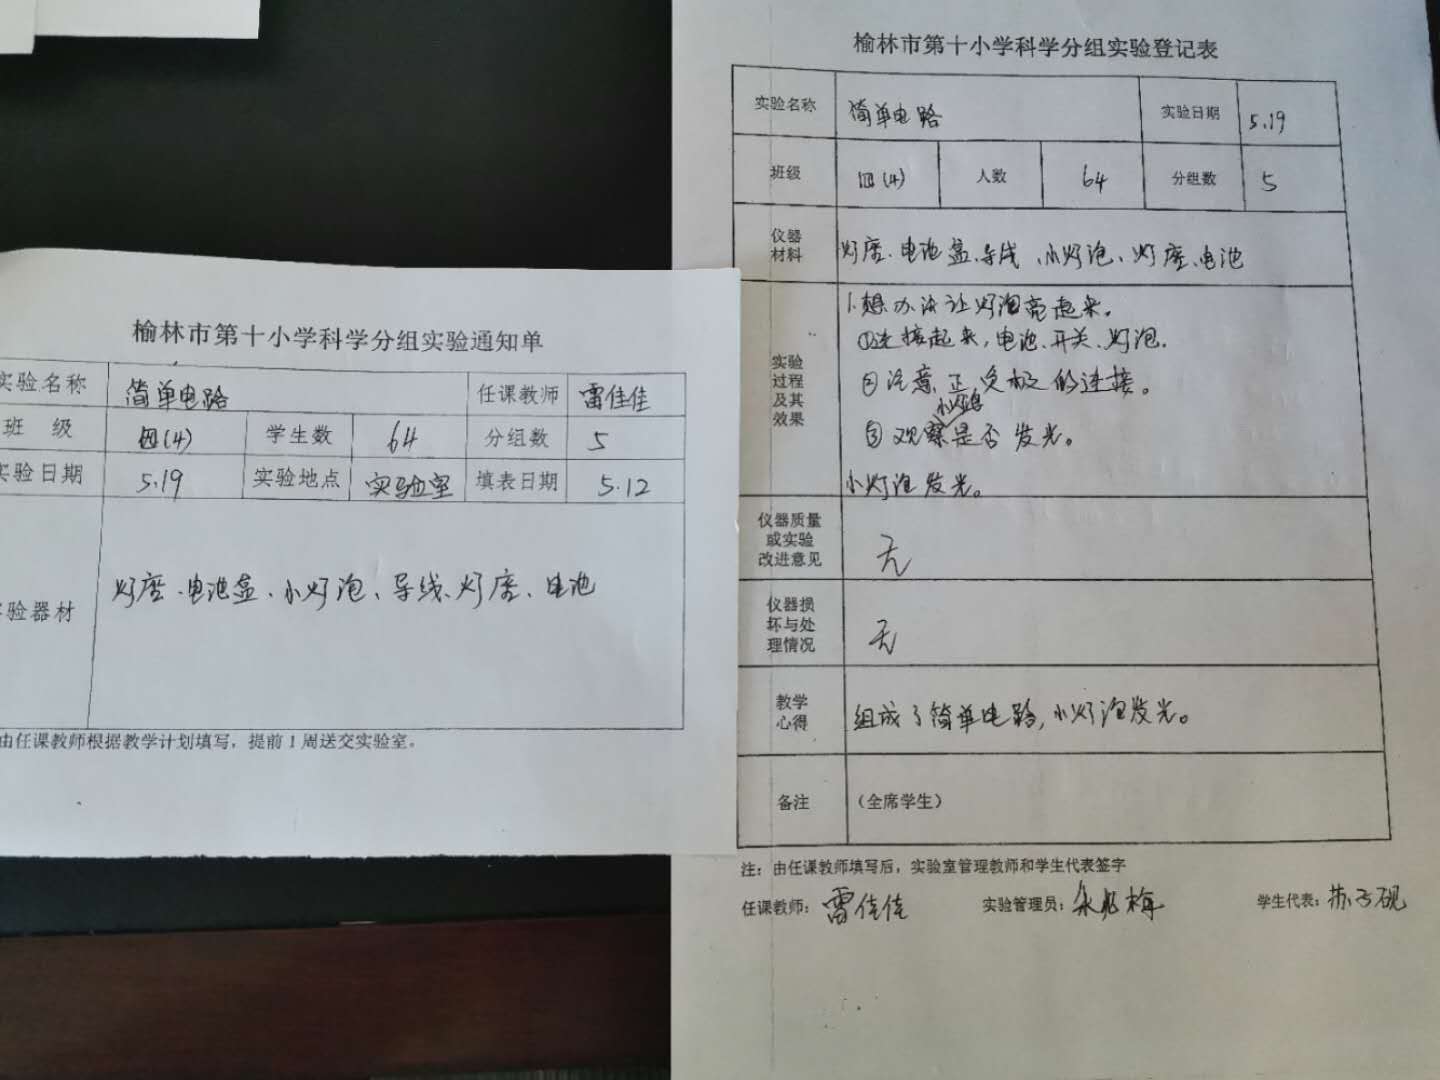 榆林市第十小学科学分组实验通知单
实验名称 简单电路 任课教师 雷佳佳
班 级 四(4) 学生数 64 分组数 5
实验日期 5.19 实验地点 实验室 填表日期 5.12
实验器材 灯座、电池盒、小灯泡、导线、灯座、电池
由任课教师根据教学计划填写，提前1周送交实验室。
榆林市第十小学科学分组实验登记表
实验名称 简单电路 实验日期 5.19
班级 四(4) 人数 64 分组数 5
仪器
材料
灯座、电池盒、导线、小灯泡、灯座、电池
实验
过程
及其
效果
1.想办法让灯泡亮起来。
①连接起来，电池、开关、灯泡.
②注意正负极的连接。
③观察小灯泡是否发光。
小灯泡发光。
仪器质量
或实验
改进意见
无
仪器损
坏与处
理情况
无
教学
心得
组成了简单电路,小灯泡发光。
备注 （全席学生）
注：由任课教师填写后，实验室管理教师和学生代表签字
任课教师：雷佳佳 实验管理员： 学生代表：